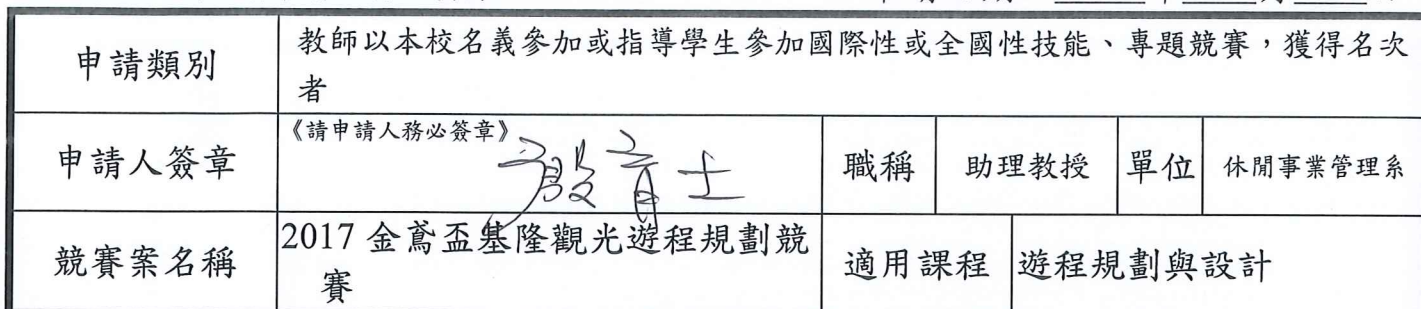 申請類別 教師以本校名義參加或指導學生參加國際性或全國性技能、專題競賽,獲得名次
者
《請申請人務必簽章》
申請人簽章 殷育士 職稱 助理教授 單位 休閒事業管理系
2017 金鳶盃基隆觀光遊程規劃競
競賽案名稱 適用課程 遊程規劃與設計
賽